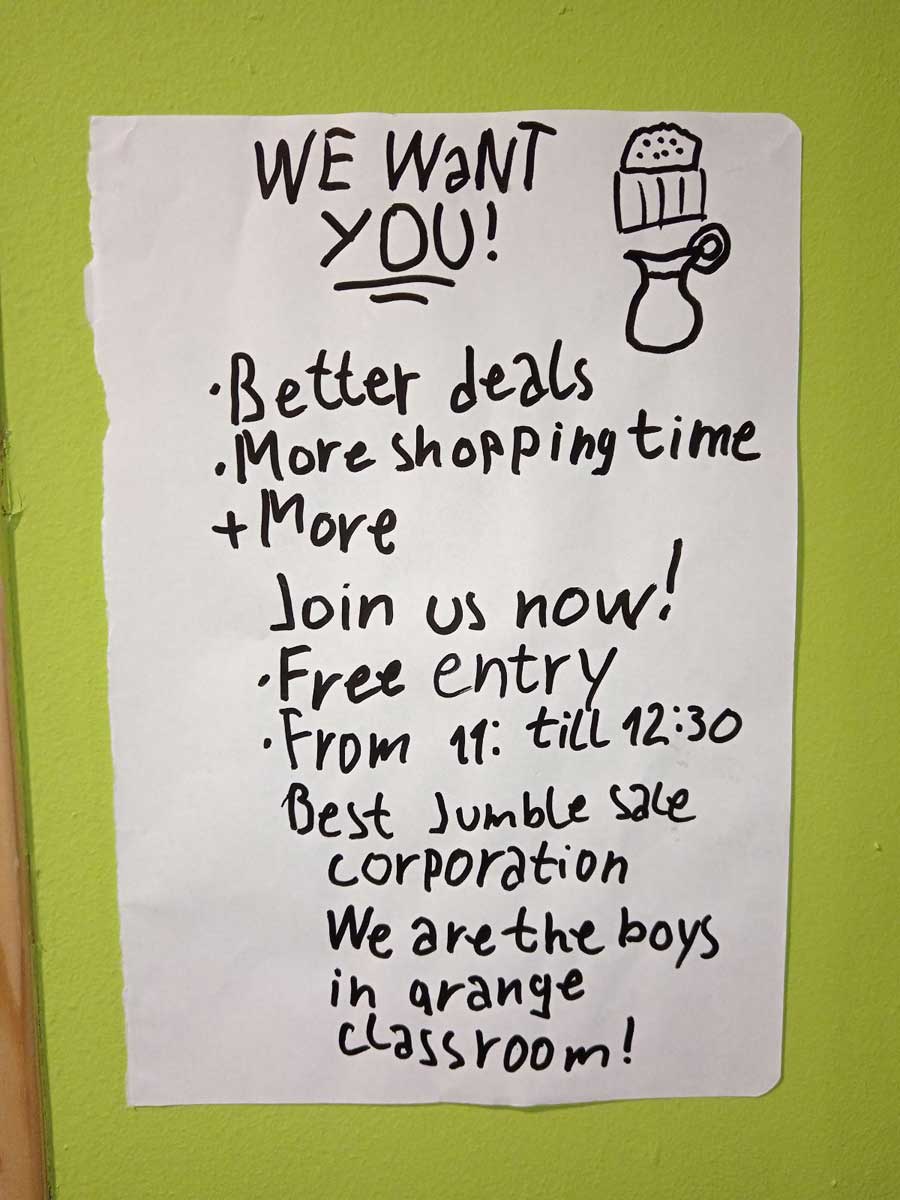 WE WaNT
YOU!
·Better deals
·More shopping time
+ More
Join us now!
·Free entry
·From 11: till 12:30
Best Jumble sale
corporation
We are the boys
in orange
classroom!